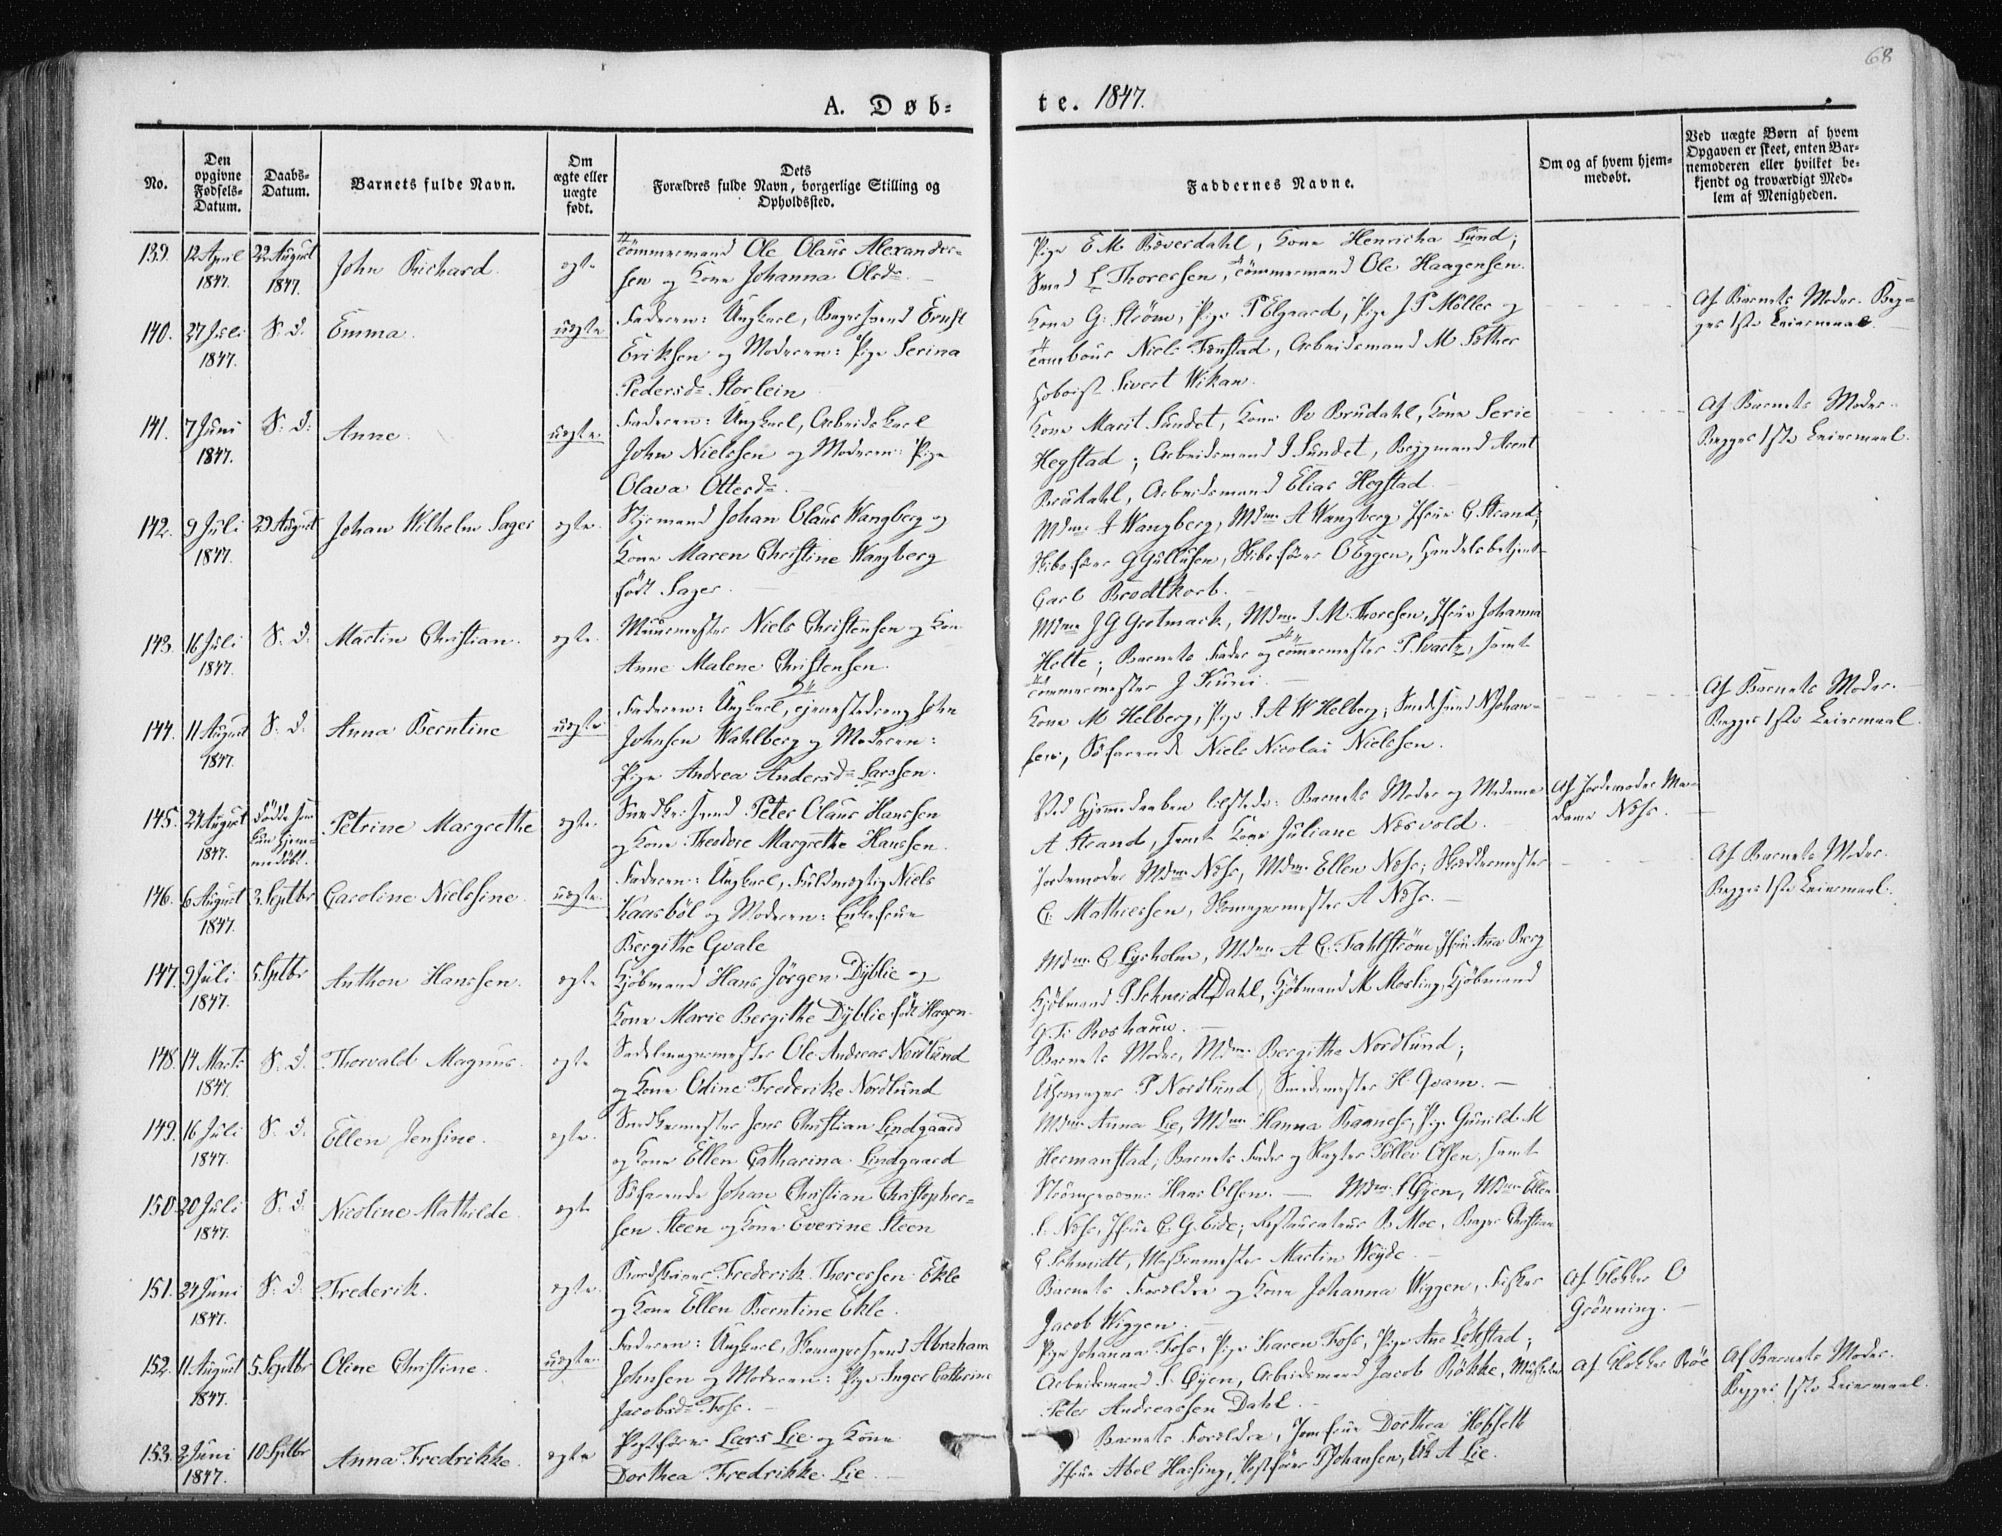 68
A. Døb=
te. 1847.
No.
Den opgivne Fødsels-Datum.
Daabs-Datum.
Barnets fulde Navn.
Om ægte eller uægte født.
Dets Forældres fulde Navn, borgerlige Stilling og Opholdssted.
Faddernes Navne.
Om og af hvem hjemmedøbt.
Ved uægte Børn af hvem Opgaven er skeet, enten Barnemoderen eller hvilket bekjendt og troværdigt Medlem af Menigheden.
139. 12 April 1847. 22 August 1847. John Richard. egte
Tömmermand Ole Olaus Alexander-
sen og Kone Johanna Olsdr.
Pige E M Bæverdahl, Kone Henricha Lund;
Smed L Thoresen, Tömmermand Ole Haagensen.
140. 27 Juli 1847. S. D. Emma. uegte
Faderen: Ungkarl, Bagersvend Ernst
Eriksen og Moderen: Pige Serina
Pedersdr Storlein
Kone G. Ström, Pige P Elgaard, Pige J P Möller og
Tambour Niels Fenstad, Arbeidsmand M Sæther
Hoboist Sivert Wikan.
Af Barnets Moder. Beg-
ges 1ste Leiermaal.
141. 7 Juni 1847. S. D. Anne. uegte.
Faderen: Ungkarl, Arbeidskarl
John Nielssen og Moderen: Pige
Olava Ottersdr.
Kone Marit Sundet, Kone R Brudahl, Kone Serie
Hegstad; Arbeidsmand J Sundet, Brygmand Arent
Brudahl, Arbeidsmand Elias Hegstad.
Af Barnets Moder.
Begges 1ste Leiermaal.
142. 9 Juli 1847. 29 August Johan Wilhelm Sager egte.
Styrmand Johan Claus Wangberg og
Kone Maren Christine Wangberg
født Sager.
Mdme J Wangberg, Mdme A Wangberg, Jfrue C Strand;
Skibsfører G Gullusen, Skibsfører O Eggen, Handelsbetjent
Carl Brodtkorb.
143. 16 Juli 1847. S. D. Martin Christian. egte.
Muurmester Niels Christensen og Kone
Anne Malene Christensen.
Mdme J G Grotmack, Mdme J. M. Thoresen, Jfrue Johanna
Holte; Barnets Fader og Tömmermester P. Svartz, samt
Tömmermester J Kuni.
144. 11 August 1847. S. D. Anna Berntine uegte
Faderen: Ungkarl, Tjenestedreng John
Johnsen Wahlberg og Moderen:
Pige Andrea Andersdr Larssen.
Kone M Helberg, Pige J A W Helberg; Smedsvend N Johan-
sen, Söfarende Niels Nicolai Nielssen.
Af Barnets Moder.
Begges 1ste Leiermaal.
145. 24 August 1847. Dødde som kun hjem-
medöbt. Petrine Margrethe egte.
Snedkersvend Peter Olaus Hanssen
og Kone Theodore Margrethe Hanssen.
Ved Hjemmedaaben tilstede: Barnets Moder og Madame
A Strand, samt Kone Juliane Næsvold.
Af Jordemoder Ma-
dame Næss.
146. 6 August 1847. 3. Septbr Caroline Nielssine. uegte.
Faderen: Ungkarl, Fuldmægtig Niels
Kaasböl og Moderen: Enkefrue
Bergithe Qvale
Jordemoder Mdme Næss, Mdme Ellen Næss; Skræddermester
C. Mathiessen, Skomagermester A Næss.
Af Barnets Moder.
Begges 1ste Leiermaal.
147. 9 Juli 1847. 5. Septbr Anthon Hanssen. egte
Kjöbmand Hans Jörgen Dyblie og
Kone Marie Bergithe Dyblie født Hagen.
Mdme C Lysholm, Mdme A C. Fahlström, Jfrue Ana Berg
Kjöbmand P. Schmeidt Dahl, Kjöbmand M Mosling, Kjöbmand
148. 14 Marts 1847. S. D. Thorvald Magnus. egte
Sadelmagermester Ole Andreas Nordlund
og Kone Oline Frederikke Nordlund
Barnets Moder, Mdme Bergithe Nordlund;
Uhrmager P Nordlund, Smedemester H. Qvam.
149. 16 Juli 1847. S. D. Ellen Jensine. egte.
Snedkermester Jens Christian Lindgaard
og Kone Ellen Catharina Lindgaard
Mdme Anna Lie, Mdme Hanna Baaness, Pige Gunild M
Hermanstad; Barnets Fader og Slagter Tollev Olsen, samt
Strömpevæver Hans Olsen.
150. 20 Juli 1847. S. D. Nicoline Mathilde. egte
Söfarende Johan Christian Christopher-
sen Steen og Kone Everine Steen
Mdme S Öyen, Mdme Ellen
S. Næss, Jfrue C G. Eide; Restaurateur B. Moe, Bager Christian
C Schmidt, Maskinmester Martin Weyde.
151. 24 Juni 1847. S. D. Frederik. egte.
Bordskriver Frederik Thoressen Ekle
og Kone Ellen Berntine Ekle.
Barnets Forældre og Kone Johanna Wiggen, Fisker
Jacob Wiggen.
Af Klokker O
Grönning.
152. 11 August 1847. 5. Septbr Oline Christine. uegte.
Faderen: Ungkarl, Skomagersvend Abraham
Johnsen og Moderen: Pige Inger Cathrine
Jacobsdr Foss.
Pige Johanna Foss, Pige Karen Foss, Pige Ane Lökstad;
Arbeidsmand S. Öyen, Arbeidsmand Jacob Rökke,
Peter Andreassen Dahl.
Af Klokker Röe
Af Barnets Moder.
Begges 1ste Leiermaal.
153. 2 Juni 1847. 10. Septbr Anna Fredrikke. egte
Postfører Lars Lie og Kone
Dorthea Fredrikke Lie.
Barnets Forældre, Jomfrue Dorthea Hopstok
Jfrue Abel Hassing, Postfører P Johansen, A Lie.